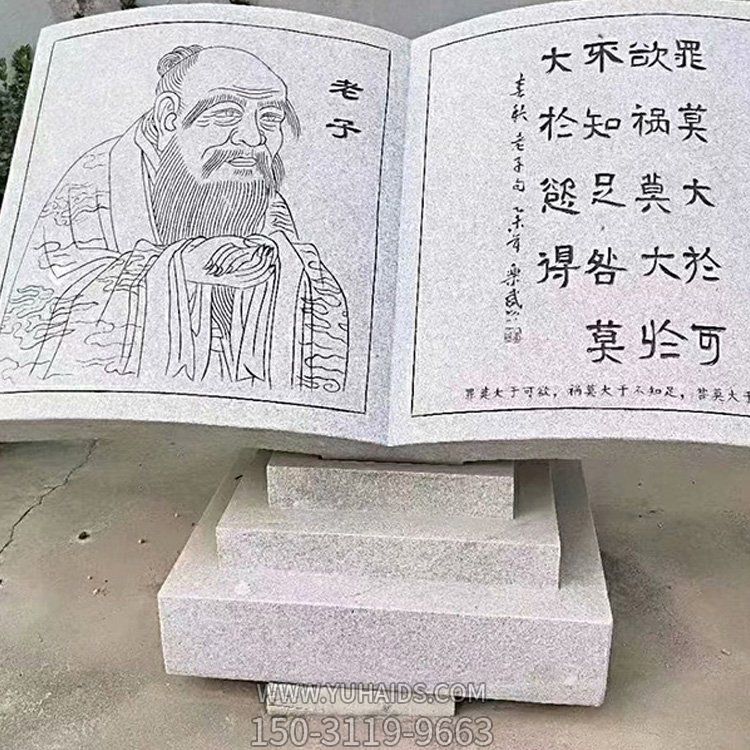 老子
罪莫大於可
欲祸莫大於
不知足，咎莫
大於慾得
春秋老子句
罪莫大于可欲，祸莫大于不知足，咎莫大于
WWW.YUHAIDS.COM
150-3119-9663